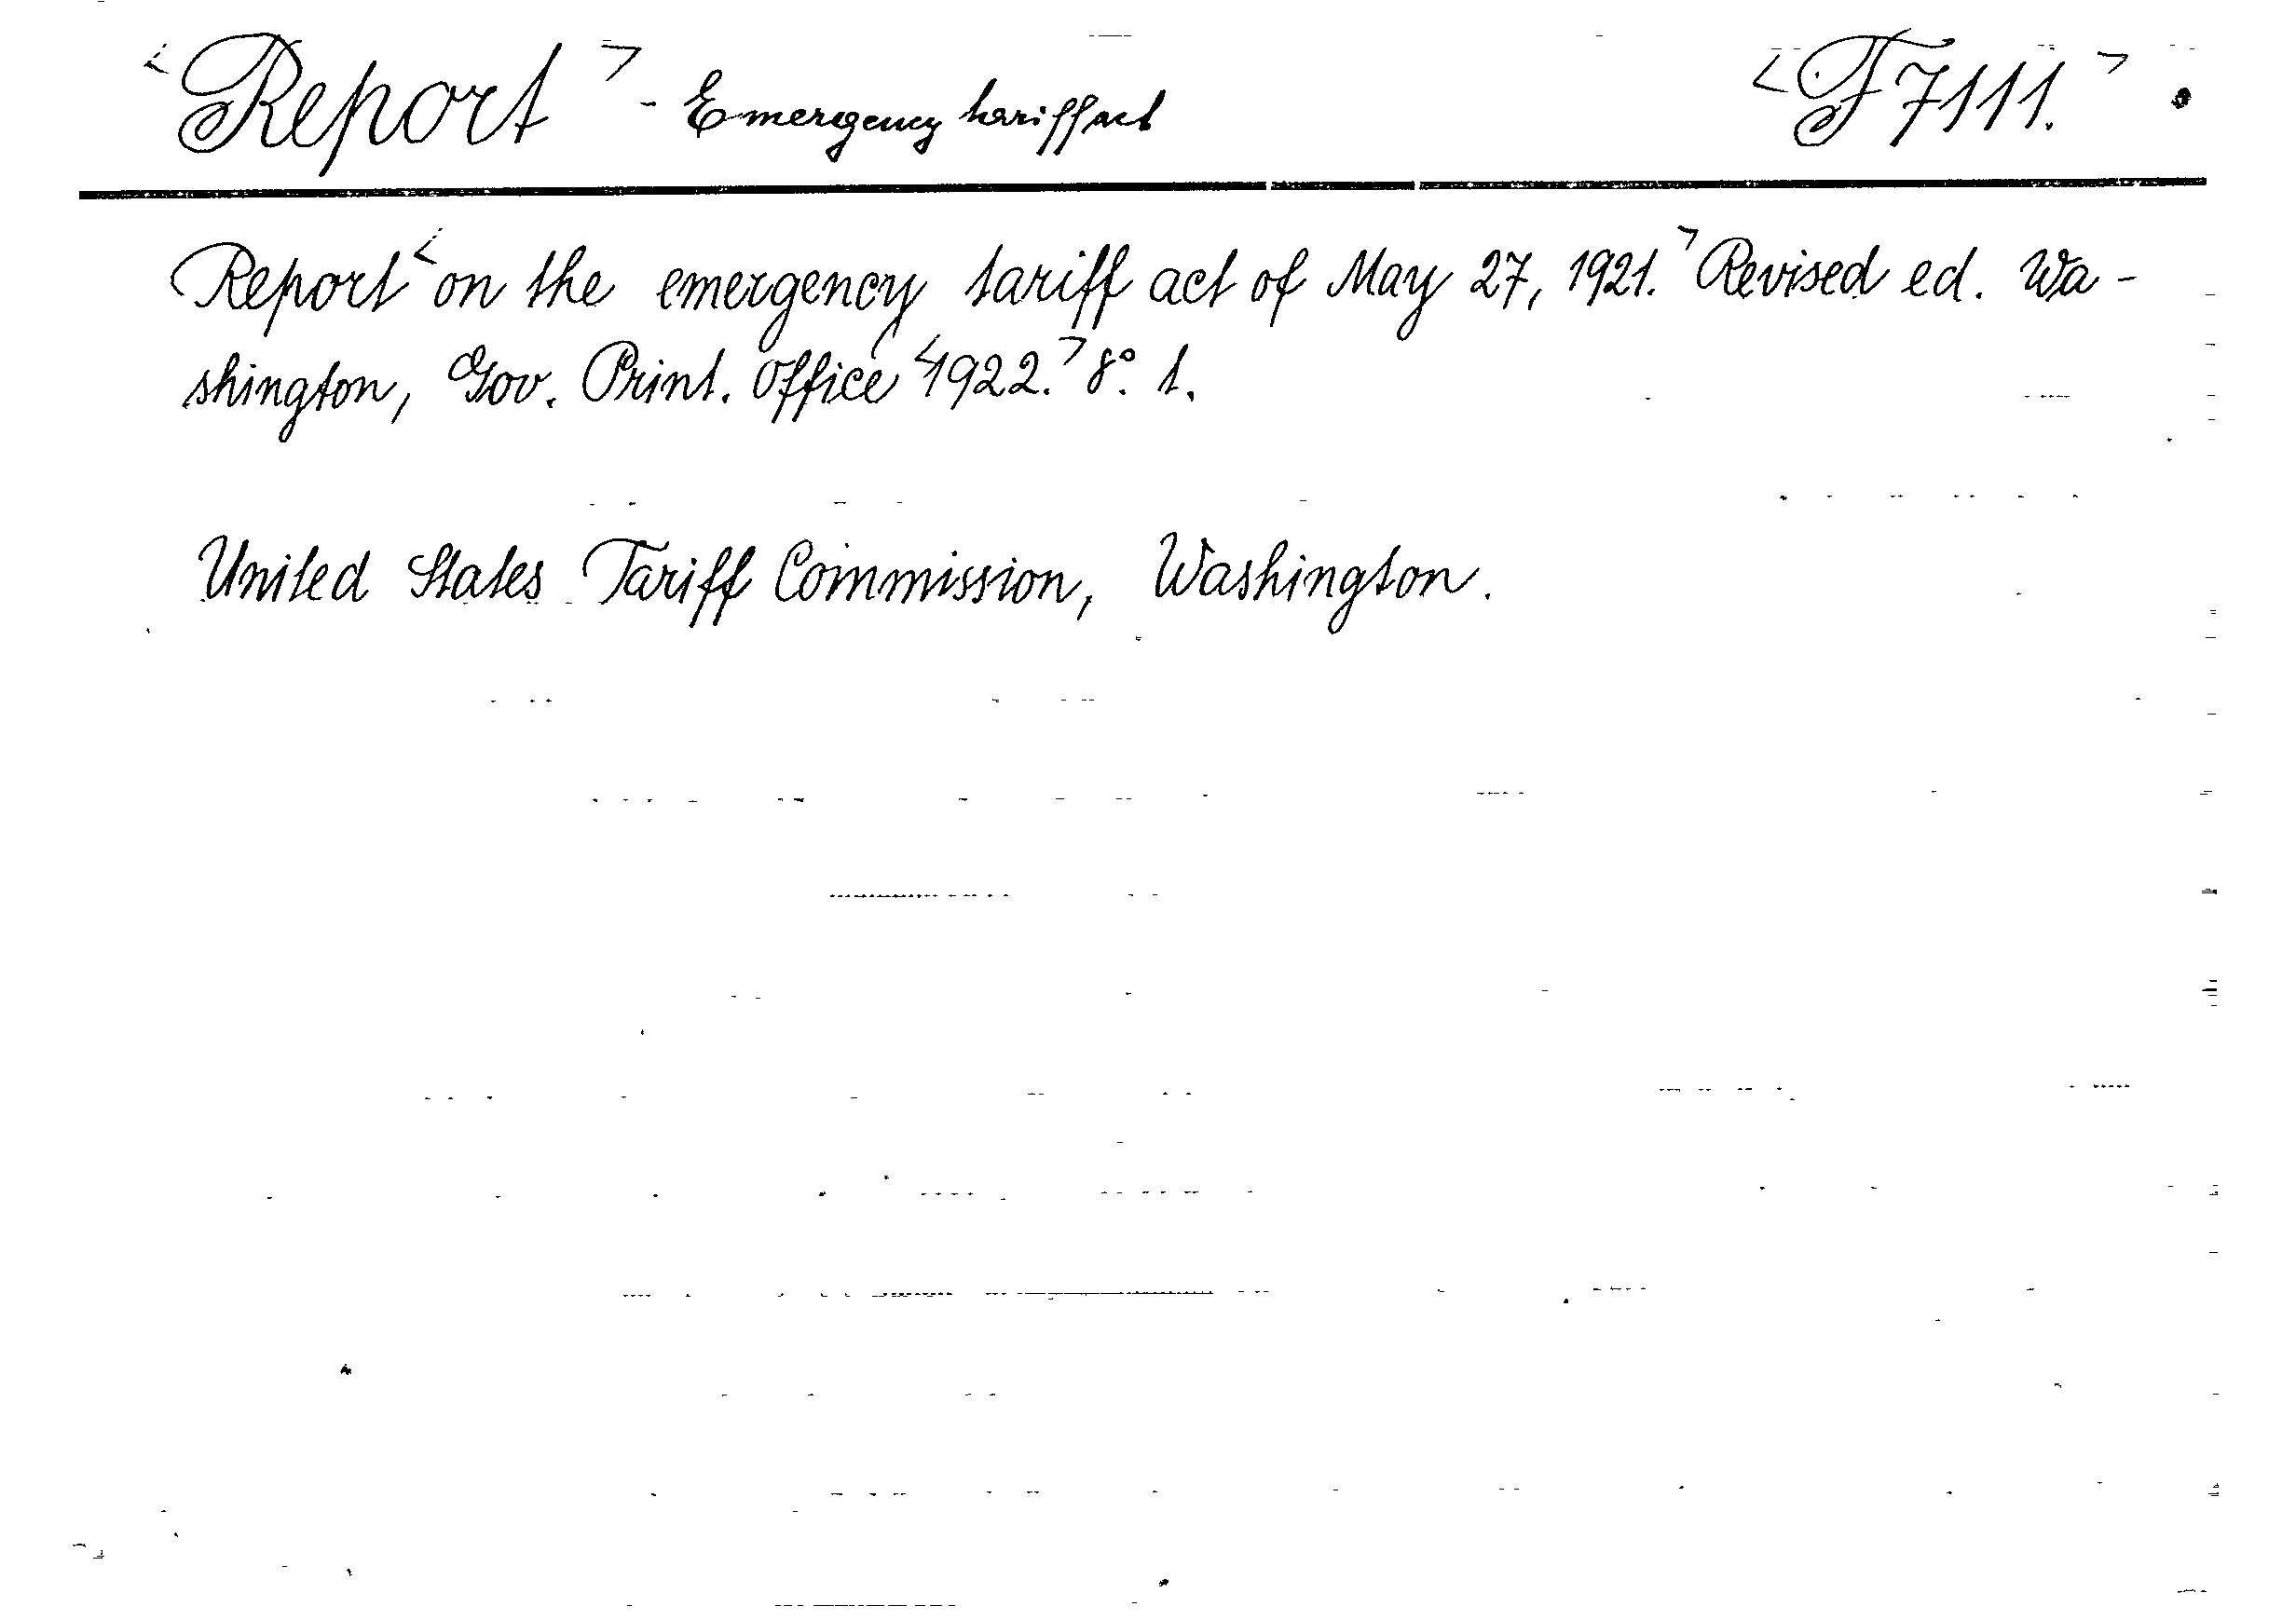 <Report> - Emergency tariff act <F7111.>
Report <on the emergency tariff act of May 27, 1921.> Revised ed. Wa-
shington, Gov. Print. Office <1922.> 8°. 1.
United States Tariff Commission, Washington.